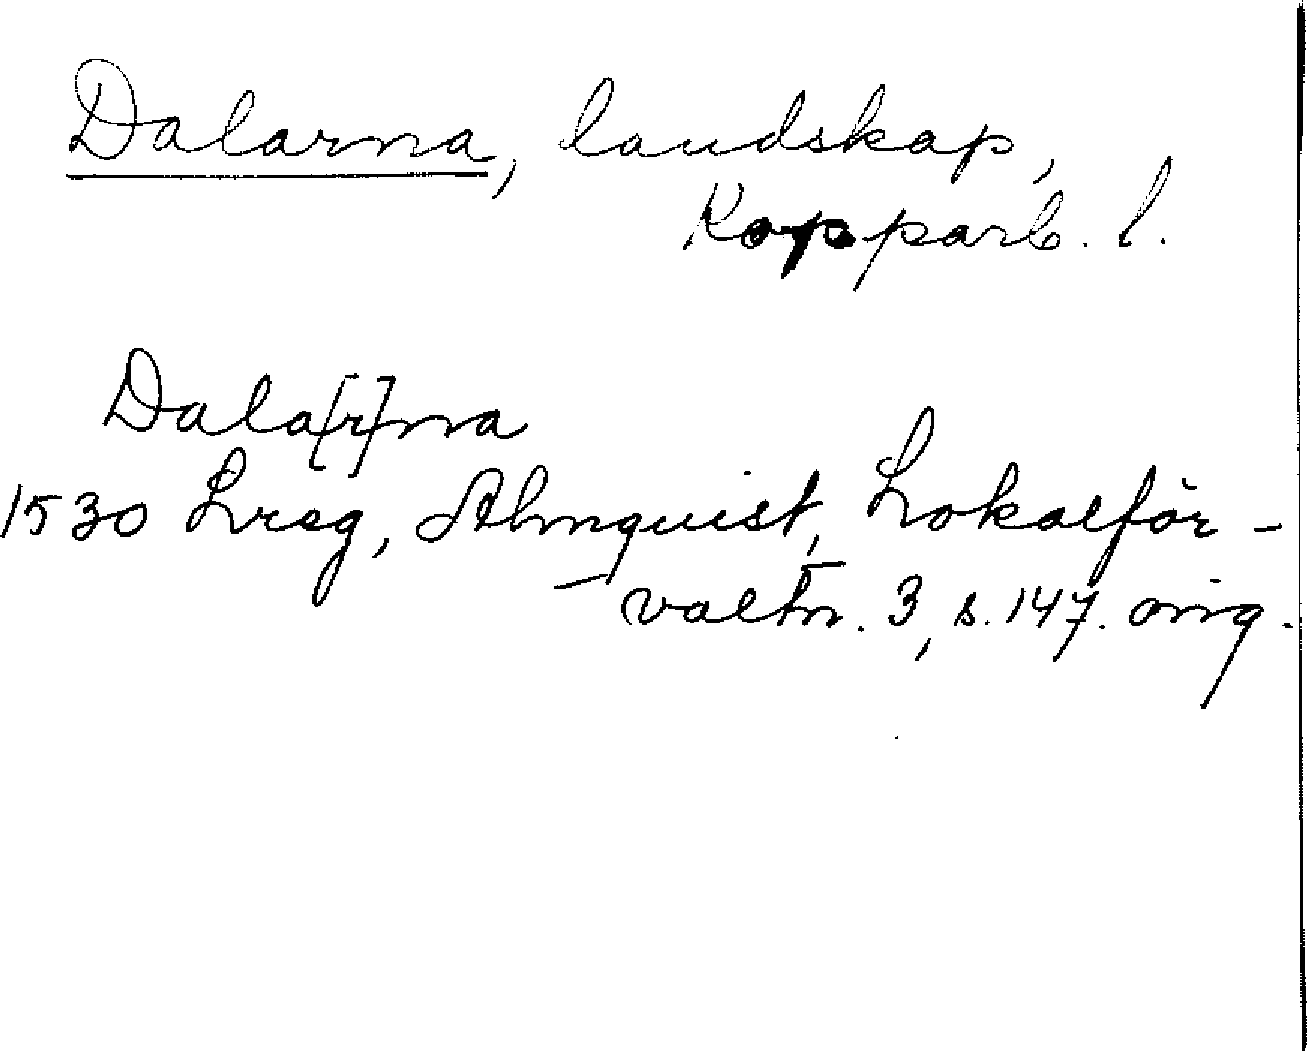 Dalarna, landskap,
Kopparb. l.
Dala[r]na
1530 Lrsg, Almquist, Lokalför-
valtn. 3, s. 147. orig.